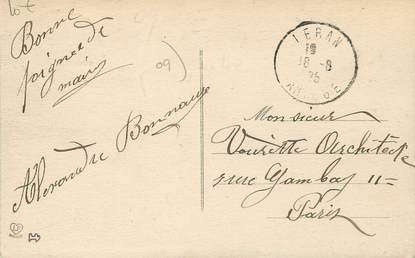 Lot
Bonne
poignet de
mains
09
Alexandre Bonnans
TERAN
18 - 8
25
ARIEGE
Monsieur
Architecte
rue Gambey 11 =
Paris